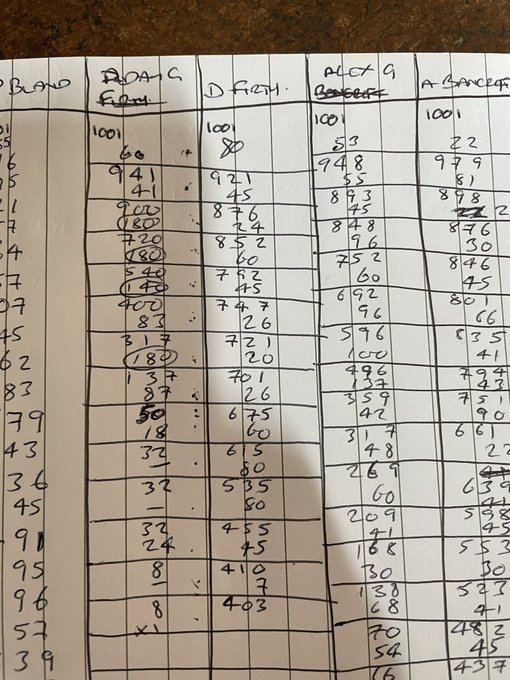 BLAND
07
45
62
83
79
43
36
45
91
95
96
57
39
ADAM G
FIRTH
1001
60
941
41
900
180
720
180
540
140
400
83
317
180
137
87
50
18
32
-
32
-
32
24
8
-
8
x1
D FIRTH.
1001
80
921
45
876
24
852
60
792
45
747
26
721
20
701
26
675
60
615
80
535
80
455
45
410
7
403
ALEX G
BANCROFT
1001
53
948
55
893
45
848
96
752
60
692
96
596
100
496
137
359
42
317
48
269
60
209
41
168
30
138
68
70
54
16
A BANCROFT
1001
22
979
81
898
22
876
30
846
45
801
66
835
41
794
43
751
90
661
22
639
41
598
45
553
30
523
41
482
45
437